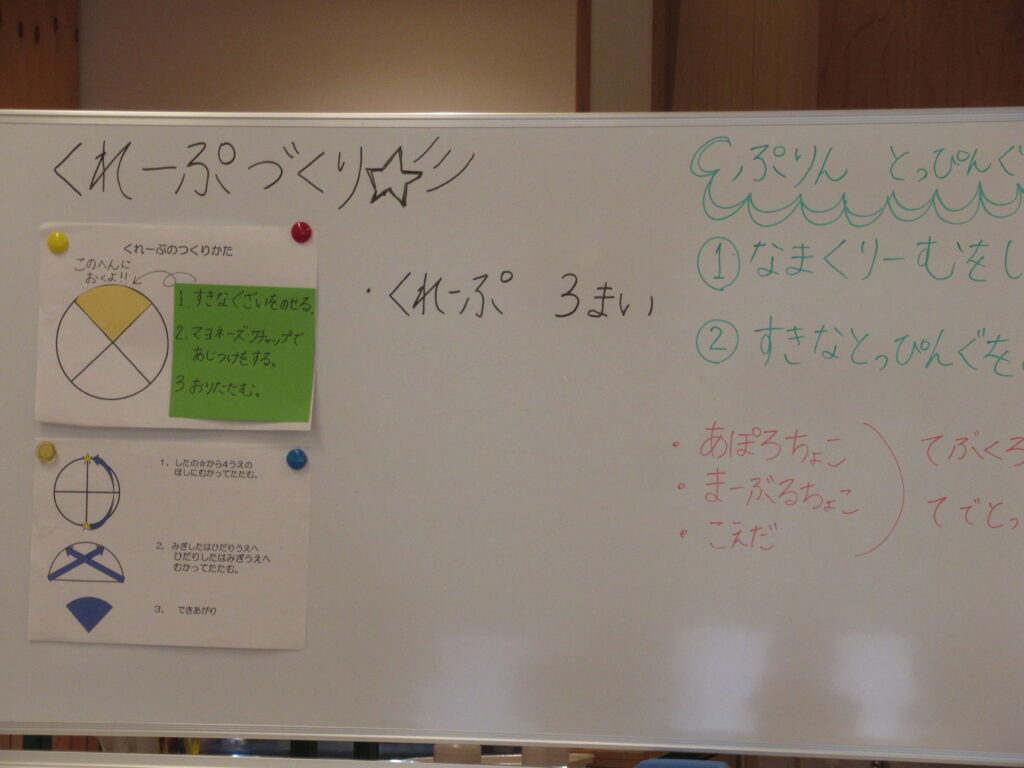 くれーぷづくり☆
くれーぷのつくりかた
このへんに
おくよ!!
1. すきなぐざいをのせる。
2. マヨネーズ・ケチャップで
あじつけをする。
3 おりたたむ。
1. したの☆から4うえの
ほしにむかってたたむ。
2. みぎしたはひだりうえへ
ひだりしたはみぎうえへ
むかってたたむ。
3. できあがり
・くれーぷ 3まい
ぷりん とっぴんぐ
① なまくりーむをし
② すきなとっぴんぐを
・あぽろちょこ
・まーぶるちょこ
・こえだ
てぶくろ
てでとっ